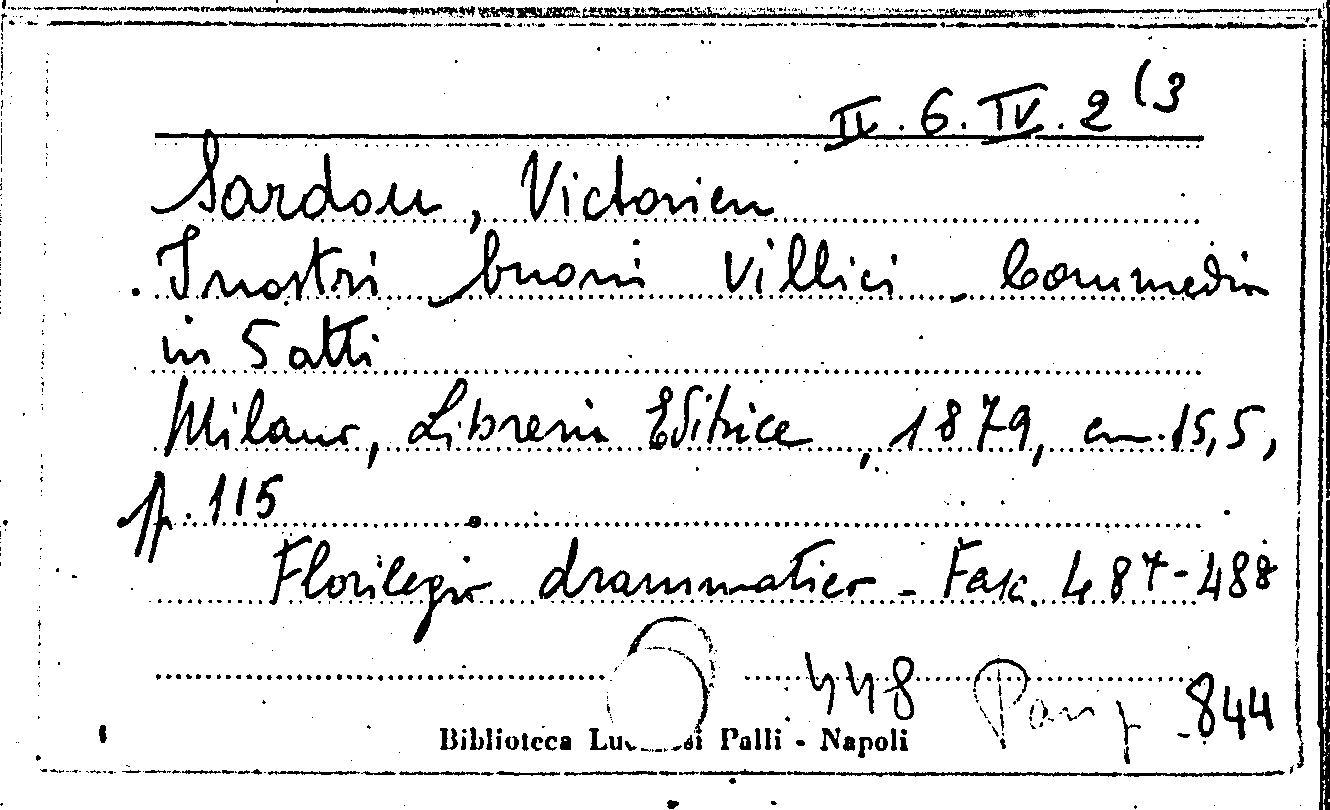 IV. 6. IV. 2 (3
Sardou, Victorien
I nostri buoni villici - Commedia
in 5 atti
Milano, Libreria Editrice, 1879, cm. 15,5,
pp. 115
Florilegio drammatico - Fasc. 487-488
448 844
Biblioteca Palli - Napoli